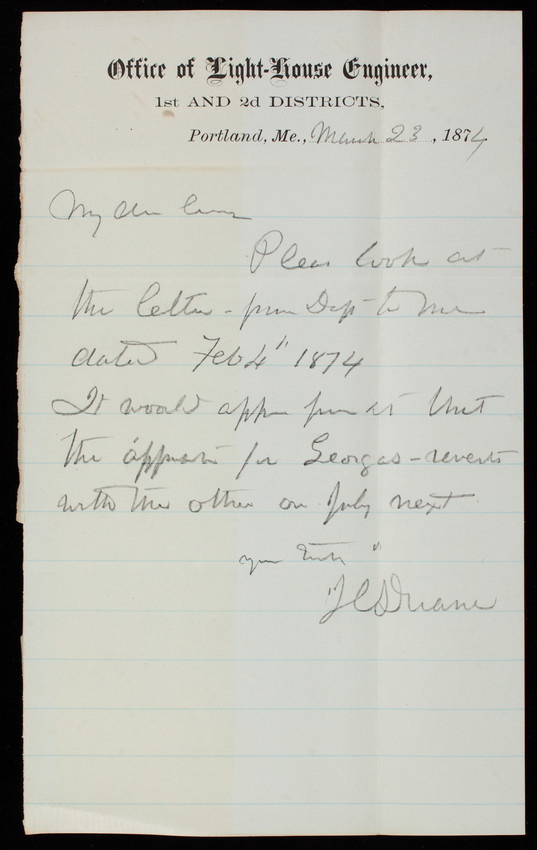 Office of Light-House Engineer,
1st AND 2d DISTRICTS,
Portland, Me., March 23, 1874
My dear
Pleas look at
the letter - from Dept to me
dated Feb 4" 1874
It would appear from it that
the for Georges - reverts
with the other on July next
your
J C Duane